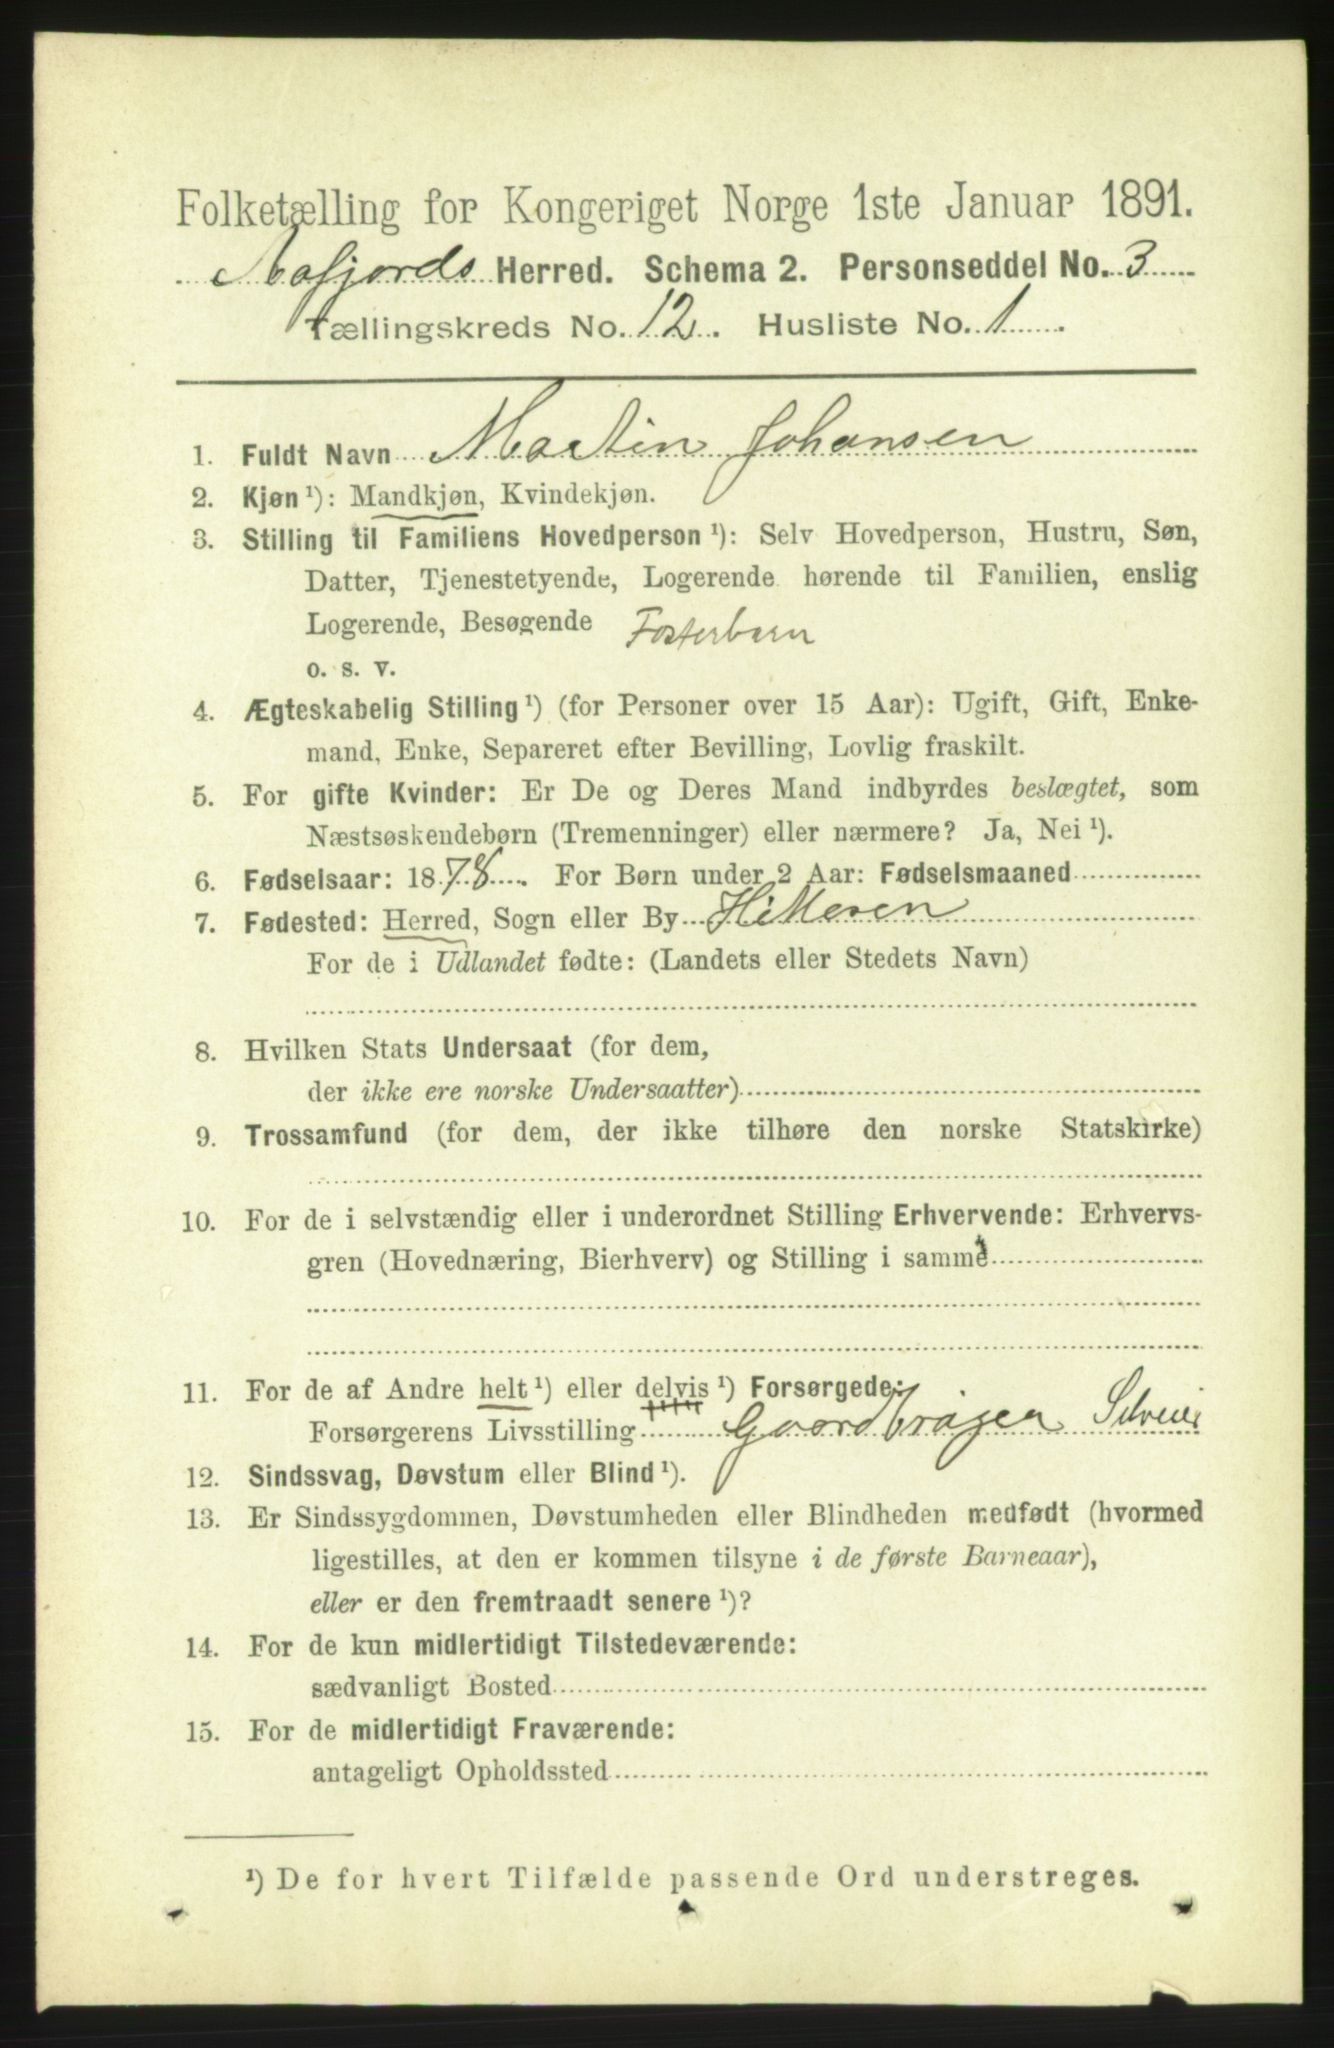 Folketælling for Kongeriget Norge 1ste Januar 1891.
Aafjords Herred. Schema 2. Personseddel No. 3
Tællingskreds No. 12. Husliste No. 1
1. Fuldt Navn Martin Johansen
2. Kjøn ¹): Mandkjøn, Kvindekjøn.
3. Stilling til Familiens Hovedperson ¹): Selv Hovedperson, Hustru, Søn,
Datter, Tjenestetyende, Logerende hørende til Familien, enslig
Logerende, Besøgende Fosterbarn
o. s. v.
4. Ægteskabelig Stilling ¹) (for Personer over 15 Aar): Ugift, Gift, Enke-
mand, Enke, Separeret efter Bevilling, Lovlig fraskilt.
5. For gifte Kvinder: Er De og Deres Mand indbyrdes beslægtet, som
Næstsøskendebørn (Tremenninger) eller nærmere? Ja, Nei ¹).
6. Fødselsaar: 1878. For Børn under 2 Aar: Fødselsmaaned
7. Fødested: Herred, Sogn eller By Hitteren
For de i Udlandet fødte: (Landets eller Stedets Navn)
8. Hvilken Stats Undersaat (for dem,
der ikke ere norske Undersaatter)
9. Trossamfund (for dem, der ikke tilhøre den norske Statskirke)
10. For de i selvstændig eller i underordnet Stilling Erhvervende: Erhvervs-
gren (Hovednæring, Bierhverv) og Stilling i samme
11. For de af Andre helt ¹) eller delvis ¹) Forsørgede:
Forsørgerens Livsstilling Gaardbrugen Selveier
12. Sindssvag, Døvstum eller Blind ¹).
13. Er Sindssygdommen, Døvstumheden eller Blindheden medfødt (hvormed
ligestilles, at den er kommen tilsyne i de første Barneaar),
eller er den fremtraadt senere ¹)?
14. For de kun midlertidigt Tilstedeværende:
sædvanligt Bosted
15. For de midlertidigt Fraværende:
antageligt Opholdssted
¹) De for hvert Tilfælde passende Ord understreges.